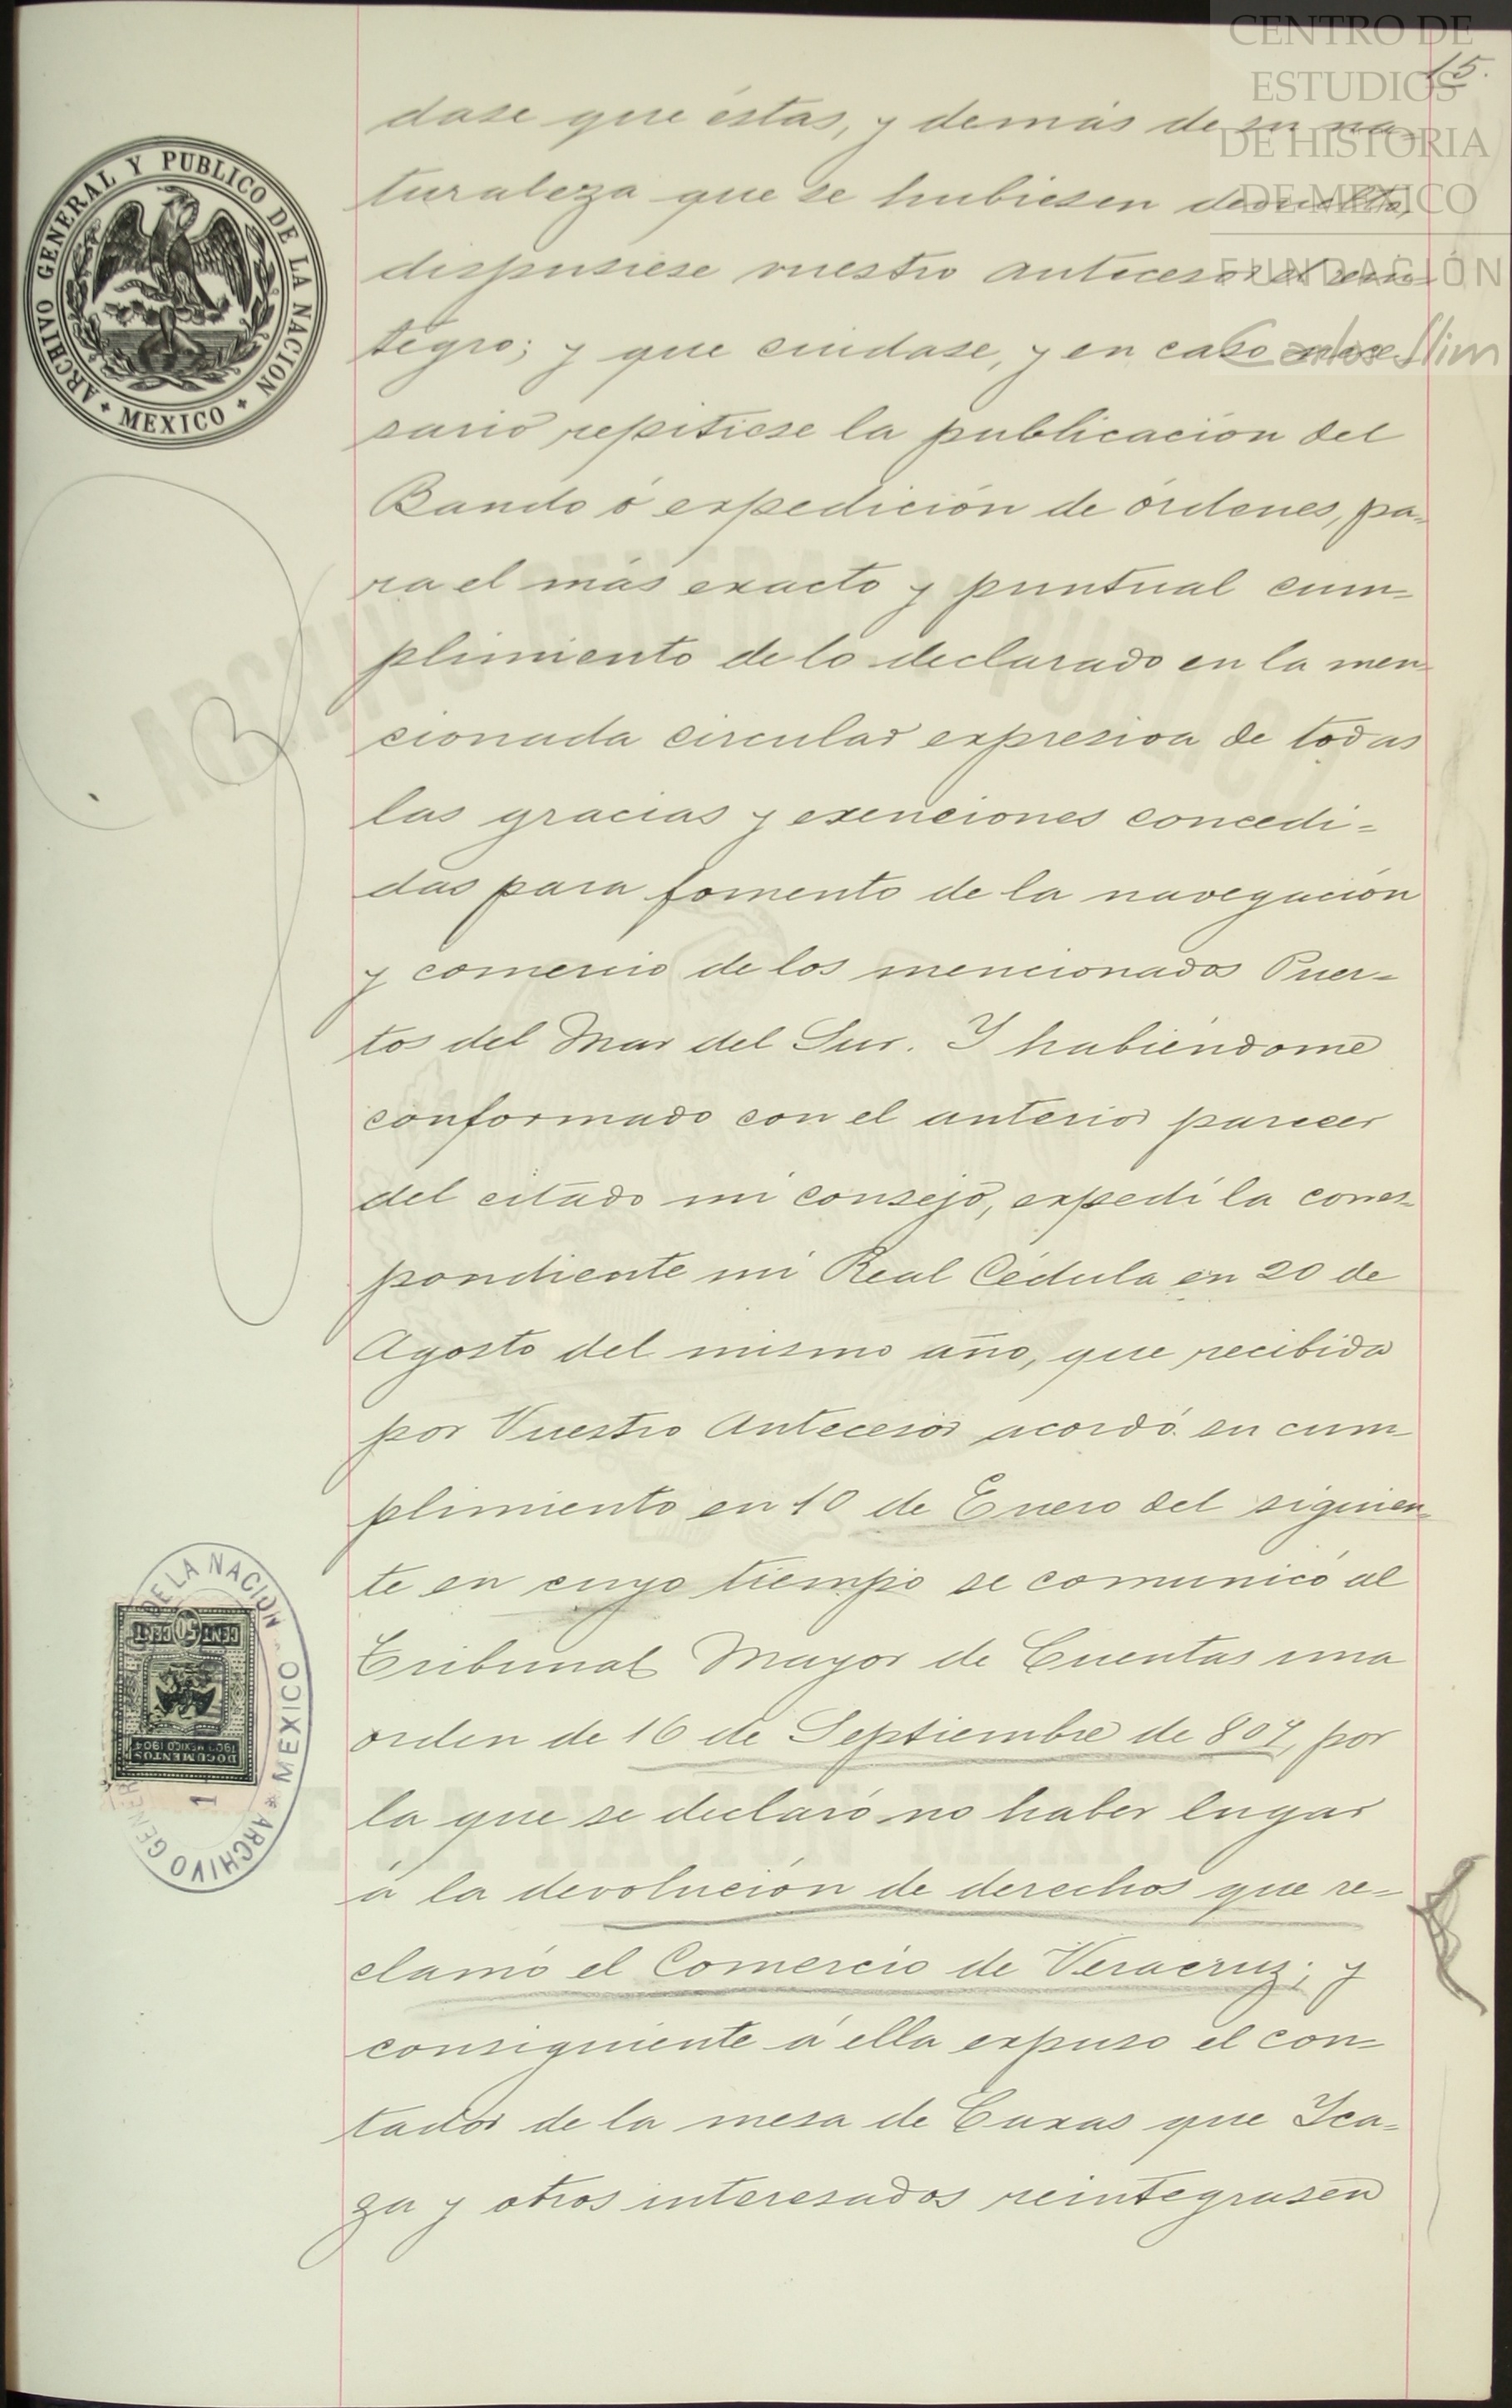 CENTRO DE
ESTUDIOS
DE HISTORIA
DE MEXICO
FUNDACIÓN
Carlos Slim
15.
ARCHIVO GENERAL Y PUBLICO DE LA NACION
* MEXICO *
dase que éstas, y demás de su na-
turaleza que se hubiesen devuelto,
dispusiese vuestro antecesor el rein-
tegro; y que cuidase, y en caso nece-
sario repitiese la publicación del
Bando ó expedición de órdenes, pa-
ra el más exacto y puntual cum-
plimiento de lo declarado en la men-
cionada circular expresiva de todas
las gracias y exenciones concedi-
das para fomento de la navegación
y comercio de los mencionados Puer-
tos del Mar del Sur. Y habiéndome
conformado con el anterior parecer
del citado mi consejo, expedí la corres-
pondiente mi Real Cédula en 20 de
Agosto del mismo año, que recibida
por Vuestro Antecesor acordó su cum-
plimiento en 10 de Enero del siguien-
te en cuyo tiempo se comunicó al
Tribunal Mayor de Cuentas una
orden de 16 de Septiembre de 807, por
la que se declaró no haber lugar
á la devolución de derechos que re-
clamó el Comercio de Veracruz; y
consiguiente á ella expuso el con-
tador de la mesa de Caxas que Ica-
za y otros interesados reintegrasen
ARCHIVO GENERAL Y PUBLICO
DE LA NACION MEXICO
DE LA NACION * MEXICO * ARCHIVO GENER
CENT 50 CENT
DOCUMENTOS
1903 MEXICO 1904
1